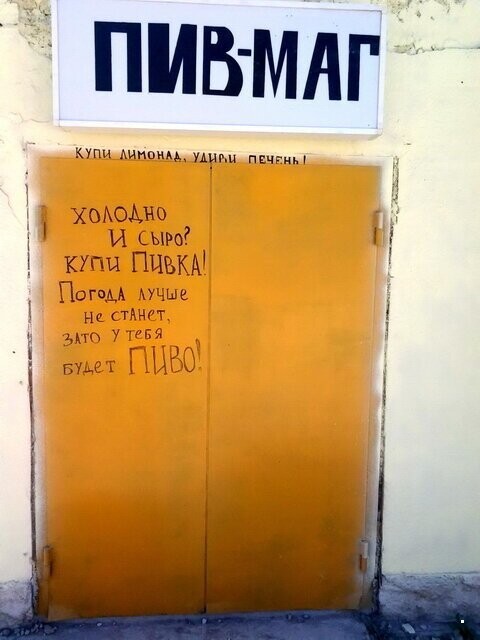 ПИВ-МАГ
КУПИ ЛИМОНАД, УДИВИ ПЕЧЕНЬ!
ХОЛОДНО
И СЫРО?
КУПИ ПИВКА!
ПОГОДА ЛУЧШЕ
НЕ СТАНЕТ,
ЗАТО У ТЕБЯ
БУДЕТ ПИВО!